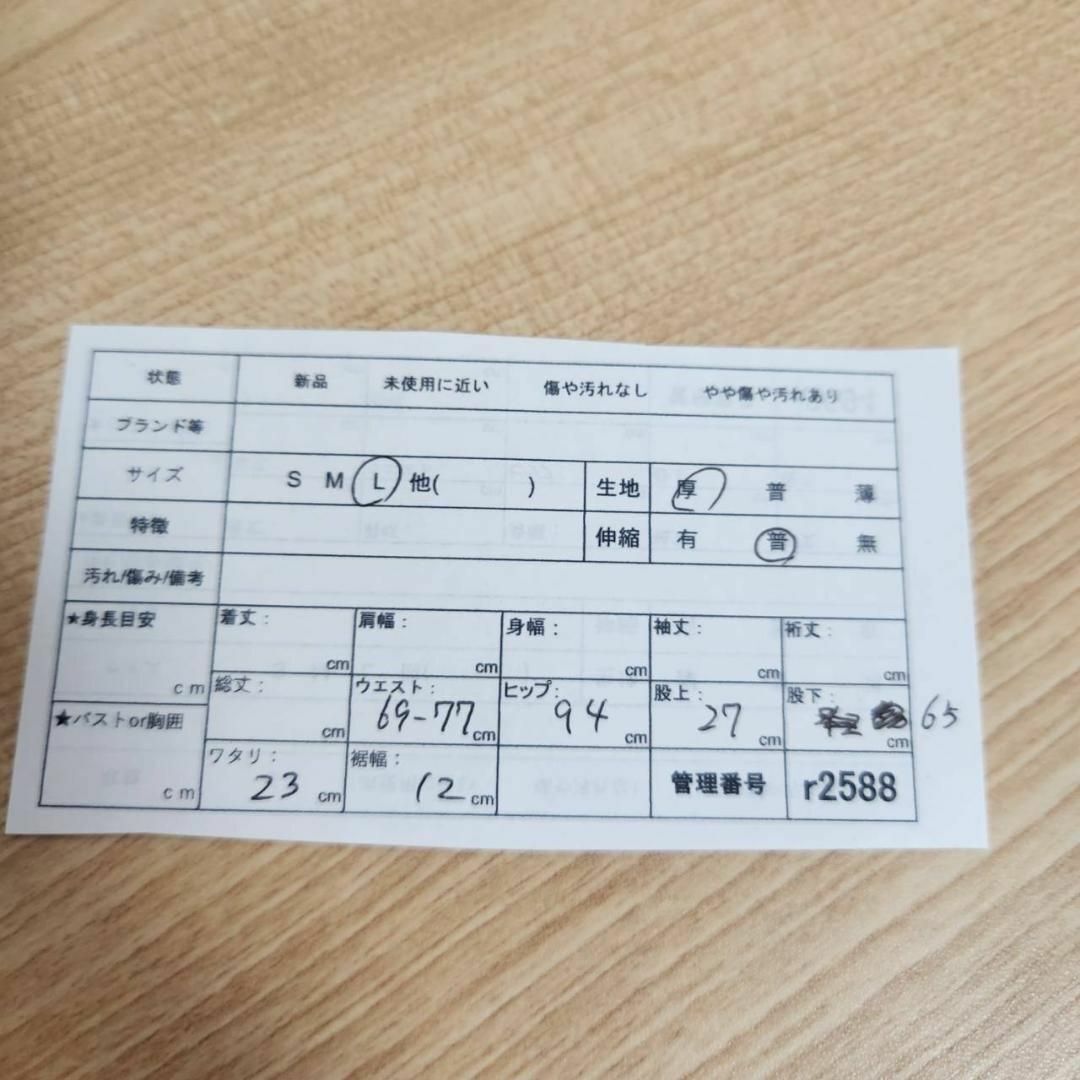 状態 新品 未使用に近い 傷や汚れなし やや傷や汚れあり
ブランド等
サイズ S M L 他( ) 生地 厚 普 薄
特徴 伸縮 有 普 無
汚れ/傷み/備考
★身長目安 cm 着丈: cm 肩幅: cm 身幅: cm 袖丈: cm 裄丈: cm
総丈: cm ウエスト: 69-77 cm ヒップ: 94 cm 股上: 27 cm 股下: cm 65
★バストor胸囲 cm ワタリ: 23 cm 裾幅: 12 cm 管理番号 r2588